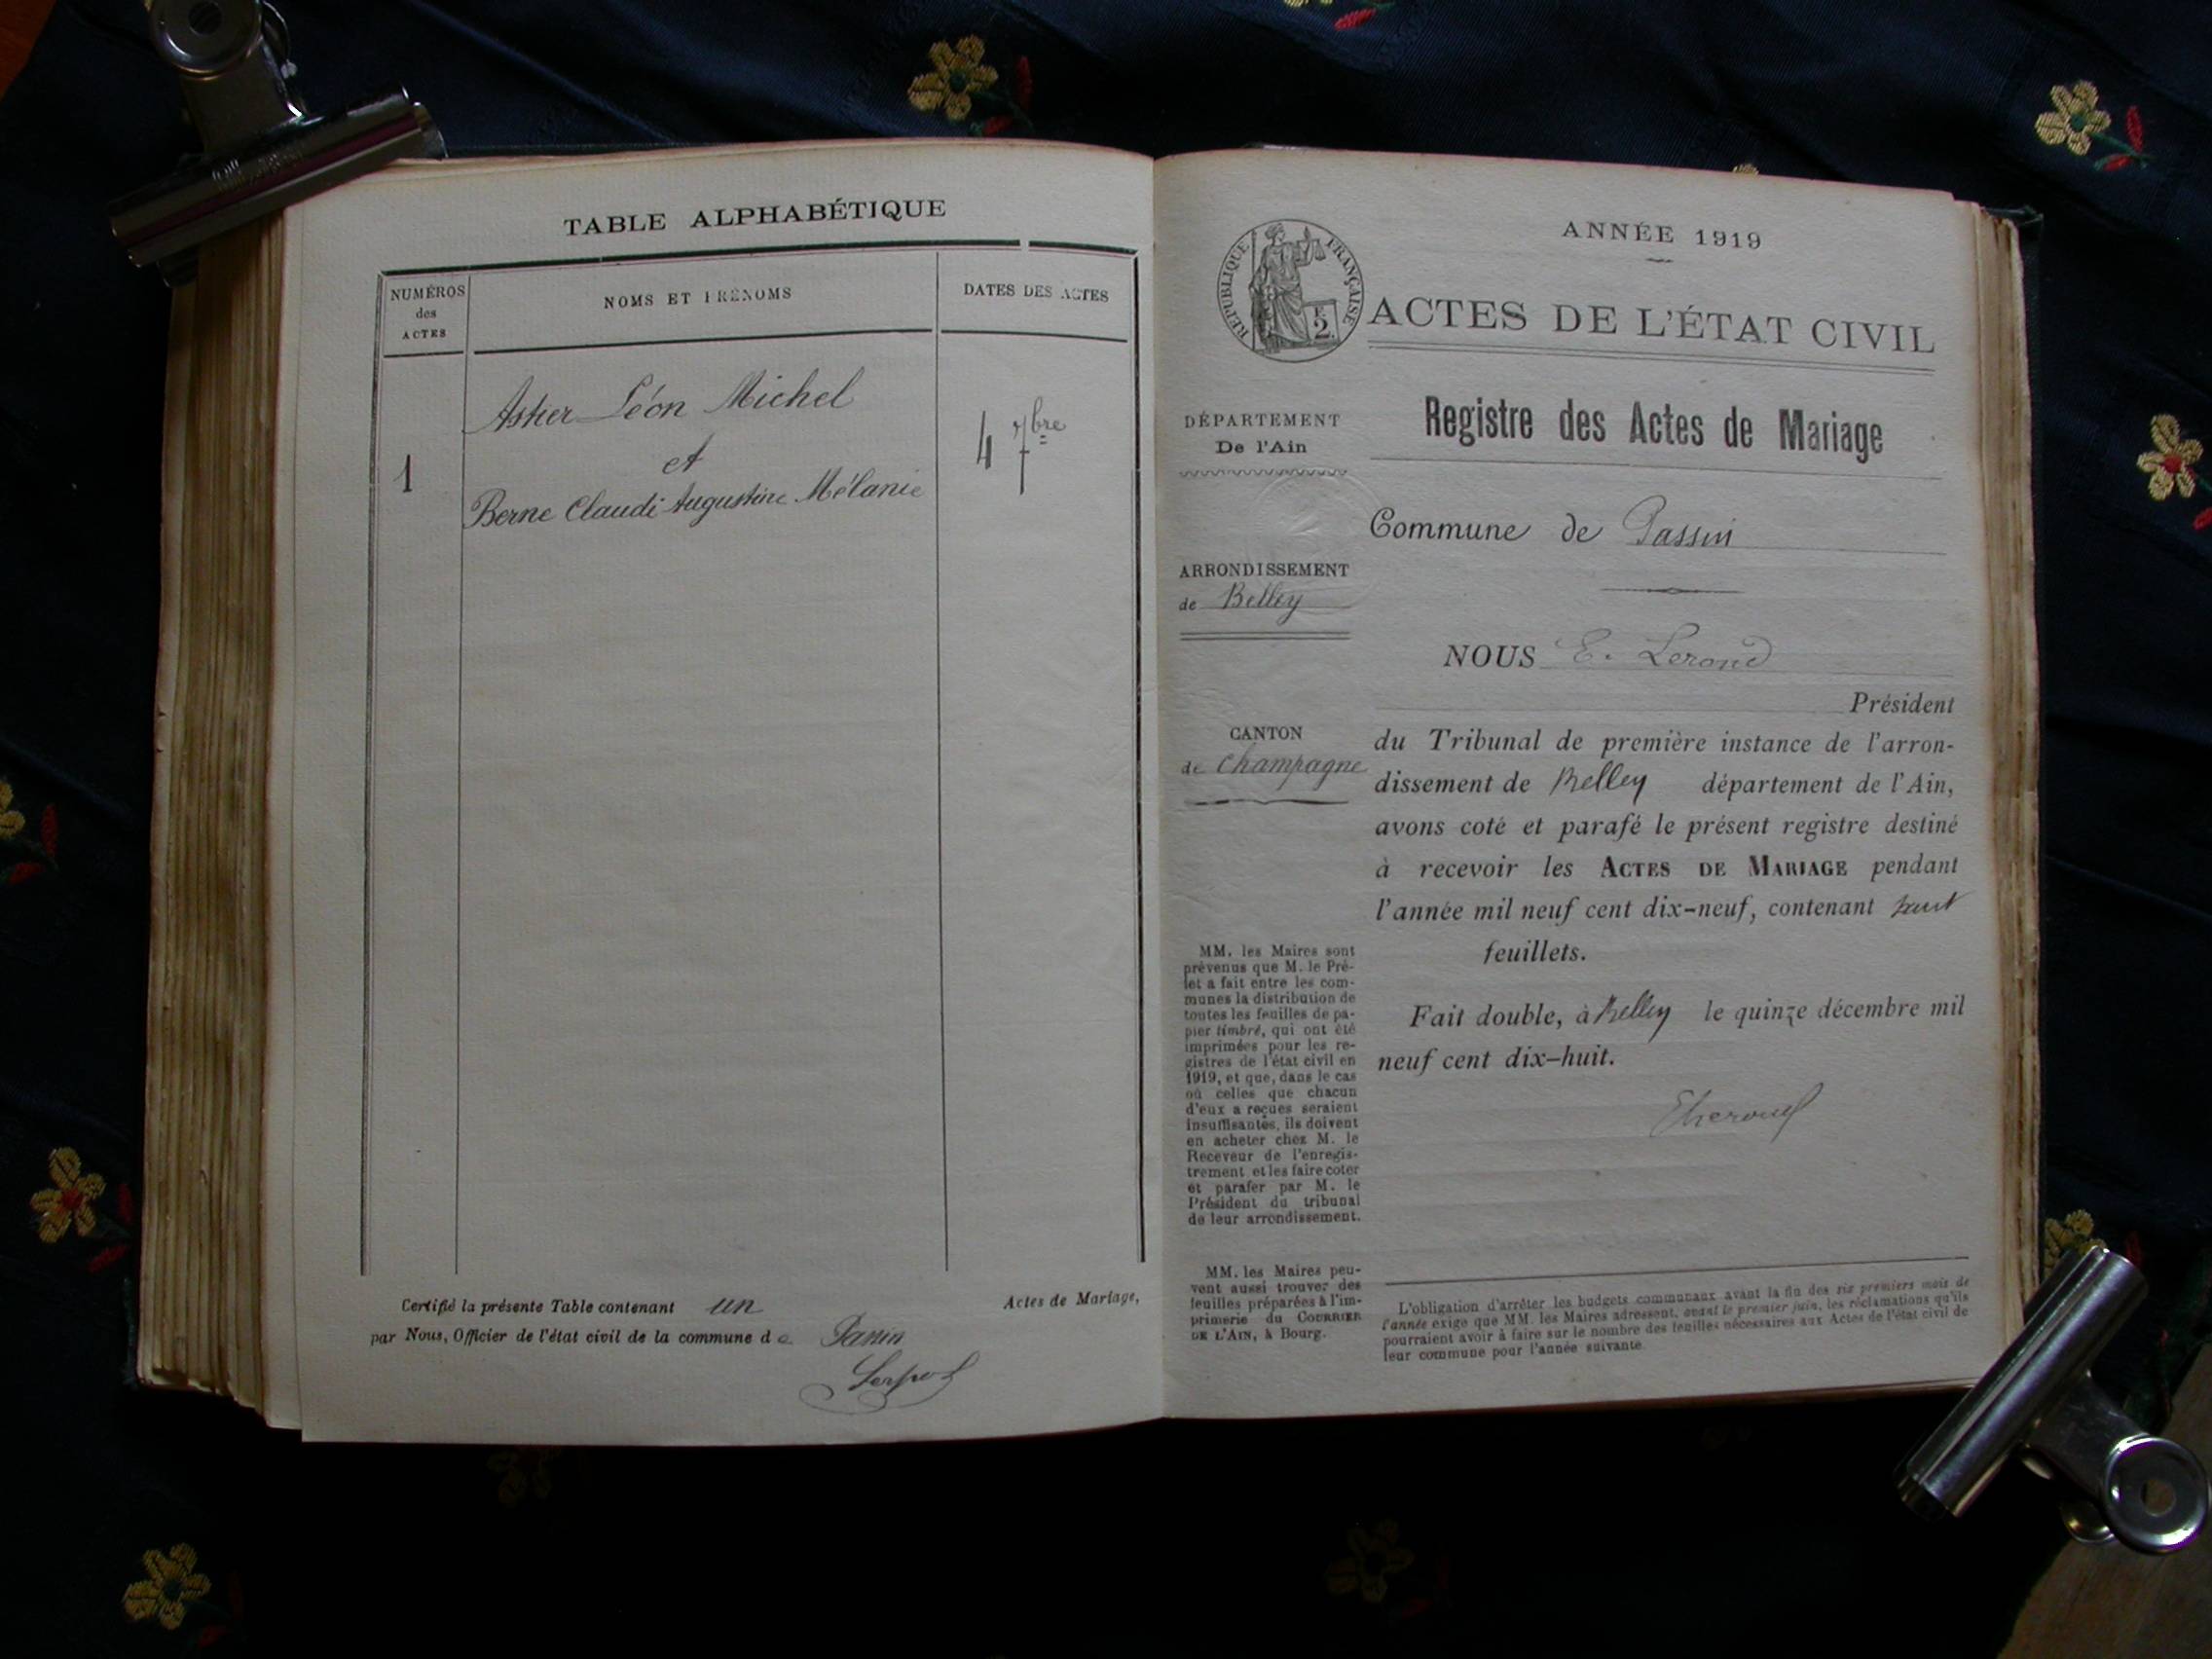 TABLE ALPHABÉTIQUE
NUMÉROS
des
ACTES
NOMS ET PRÉNOMS
DATES DES ACTES
Astier Léon Michel
et
1
4 7bre
Berne Claudi Augustine Mélanie
Certifié la présente Table contenant un Actes de Mariage,
par Nous, Officier de l'état civil de la commune de Passin
ANNÉE 1919
RÉPUBLIQUE FRANÇAISE
2
ACTES DE L'ÉTAT CIVIL
DÉPARTEMENT
De l'Ain
Registre des Actes de Mariage
Commune de Passin
ARRONDISSEMENT
de Belley
NOUS E. Lerond
Président
CANTON
de Champagne
du Tribunal de première instance de l'arron-
dissement de Belley département de l'Ain,
avons coté et parafé le présent registre destiné
à recevoir les ACTES DE MARIAGE pendant
l'année mil neuf cent dix-neuf, contenant
feuillets.
Fait double, à Belley le quinze décembre mil
neuf cent dix-huit.
MM. les Maires sont
prévenus que M. le Pré-
fet a fait entre les com-
munes la distribution de
toutes les feuilles de pa-
pier timbré, qui ont été
imprimées pour les re-
gistres de l'état civil en
1919, et que, dans le cas
où celles que chacun
d'eux a reçues seraient
insuffisantes, ils doivent
en acheter chez M. le
Receveur de l'enregis-
trement et les faire coter
et parafer par M. le
Président du tribunal
de leur arrondissement.
MM. les Maires peu-
vent aussi trouver des
feuilles préparées à l'im-
primerie du COURRIER
DE L'AIN, à Bourg.
L'obligation d'arrêter les budgets communaux avant la fin des six premiers mois de
l'année exige que MM. les Maires adressent, avant le premier juin, les réclamations qu'ils
pourraient avoir à faire sur le nombre des feuilles nécessaires aux Actes de l'état civil de
leur commune pour l'année suivante.